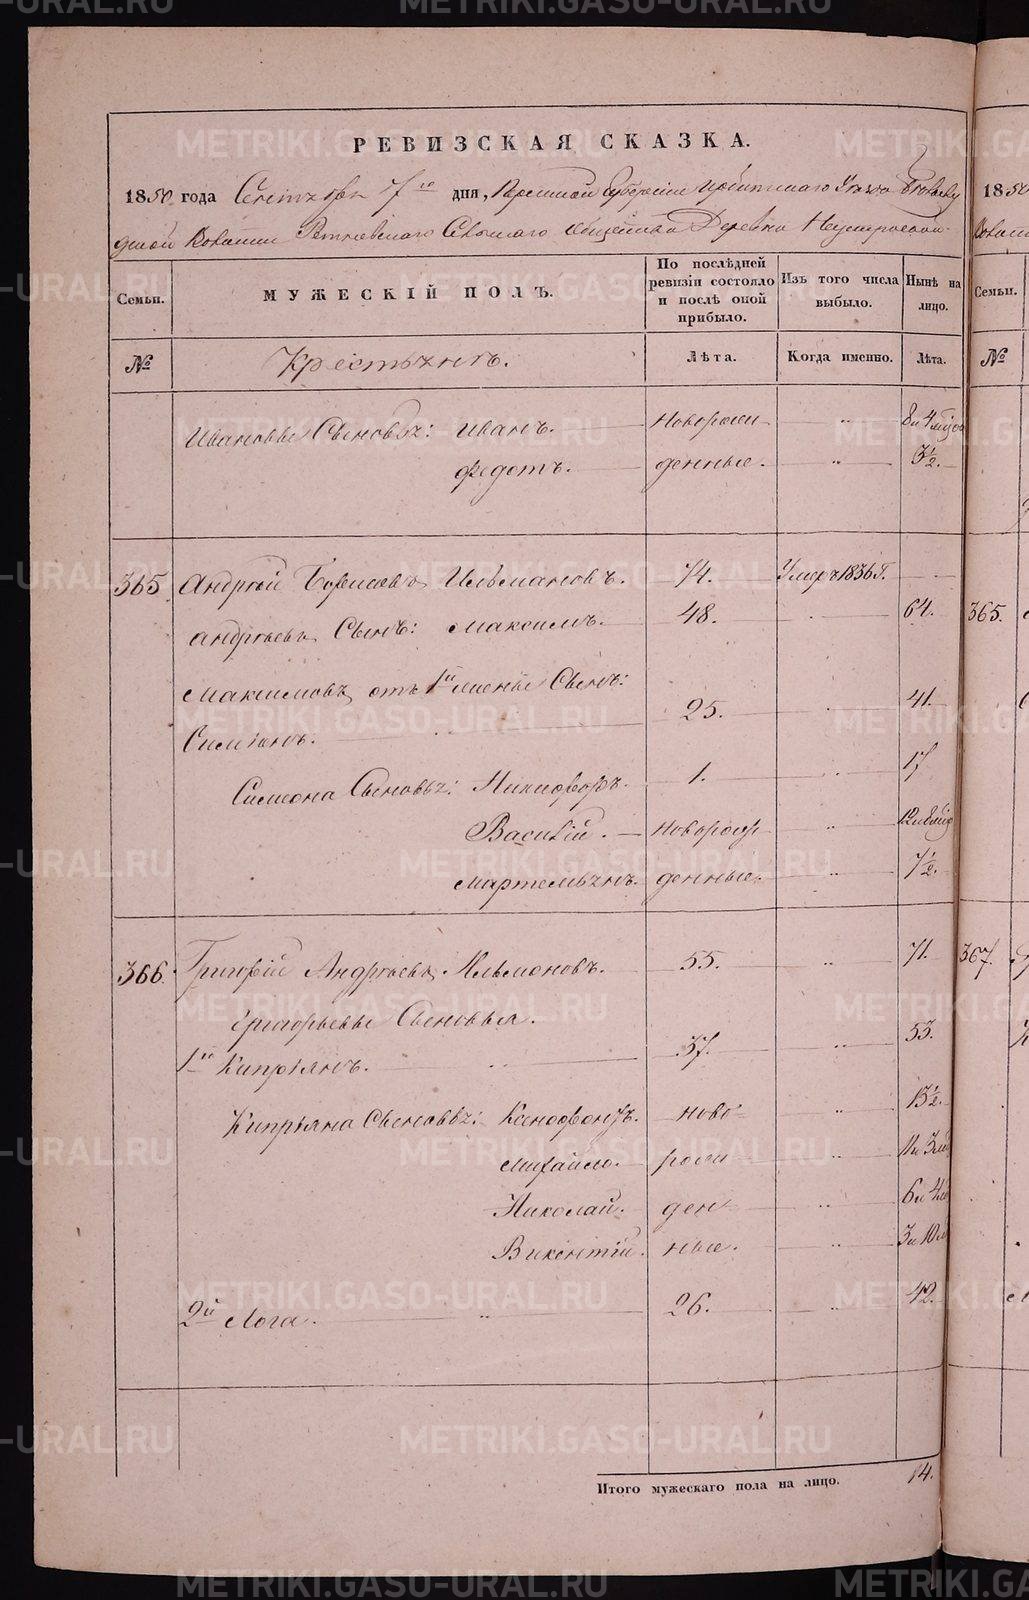 РЕВИЗСКАЯ СКАЗКА.
1850 года Сентября 7го дня, Пермской Губернии Ирбитскаго Уезда
Волости Ретневскаго Сельскаго общества Деревни Неустроевой
Семьи. МУЖЕСКІЙ ПОЛЪ. По послѣдней ревизіи состояло и послѣ оной прибыло. Изъ того числа выбыло. Нынѣ на лицо.
№ Крестьянъ. Лѣта. Когда именно. Лѣта.
Ивановы Сыновья: Иванъ. Новорож 8 и 4 мѣс
Федотъ. денные. 3½.
365 Андрей Борисовъ Ильмановъ. 74. Умеръ 1836 г.
Андреевъ Сынъ: Максимъ. 48. 64.
Максимовъ отъ 1й жены Сынъ:
Симеонъ. 25. 41.
Симеона Сыновья: Никифоръ. 1. 17
Василій. Новорож 12 и 8 мѣс
Мартемьянъ. денные. 7½.
366. Григорій Андреевъ Ильмоновъ. 55. 71.
Григорьевы Сыновья.
1й Кипріянъ. 37. 53.
Кипріяна Сыновья: Ксенофонтъ. ново 13½.
Михайло. рож 11 и 3 мѣ
Николай. ден 6 и 4 м
Викентій. ные. 3 и 10 м
2й Лога. 26. 42.
Итого мужескаго пола на лицо. 14.
1850
Семьи.
№
365.
367.
METRIKI.GASO-URAL.RU